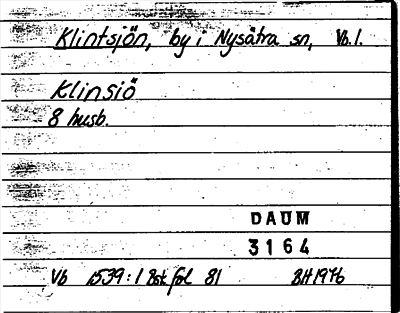 Klintsjön, by i Nysätra sn, Vb.l.
Klinsiö
8 husb.
DAUM
3164
Vb 1539:1 Bst fol 81 BH 1976